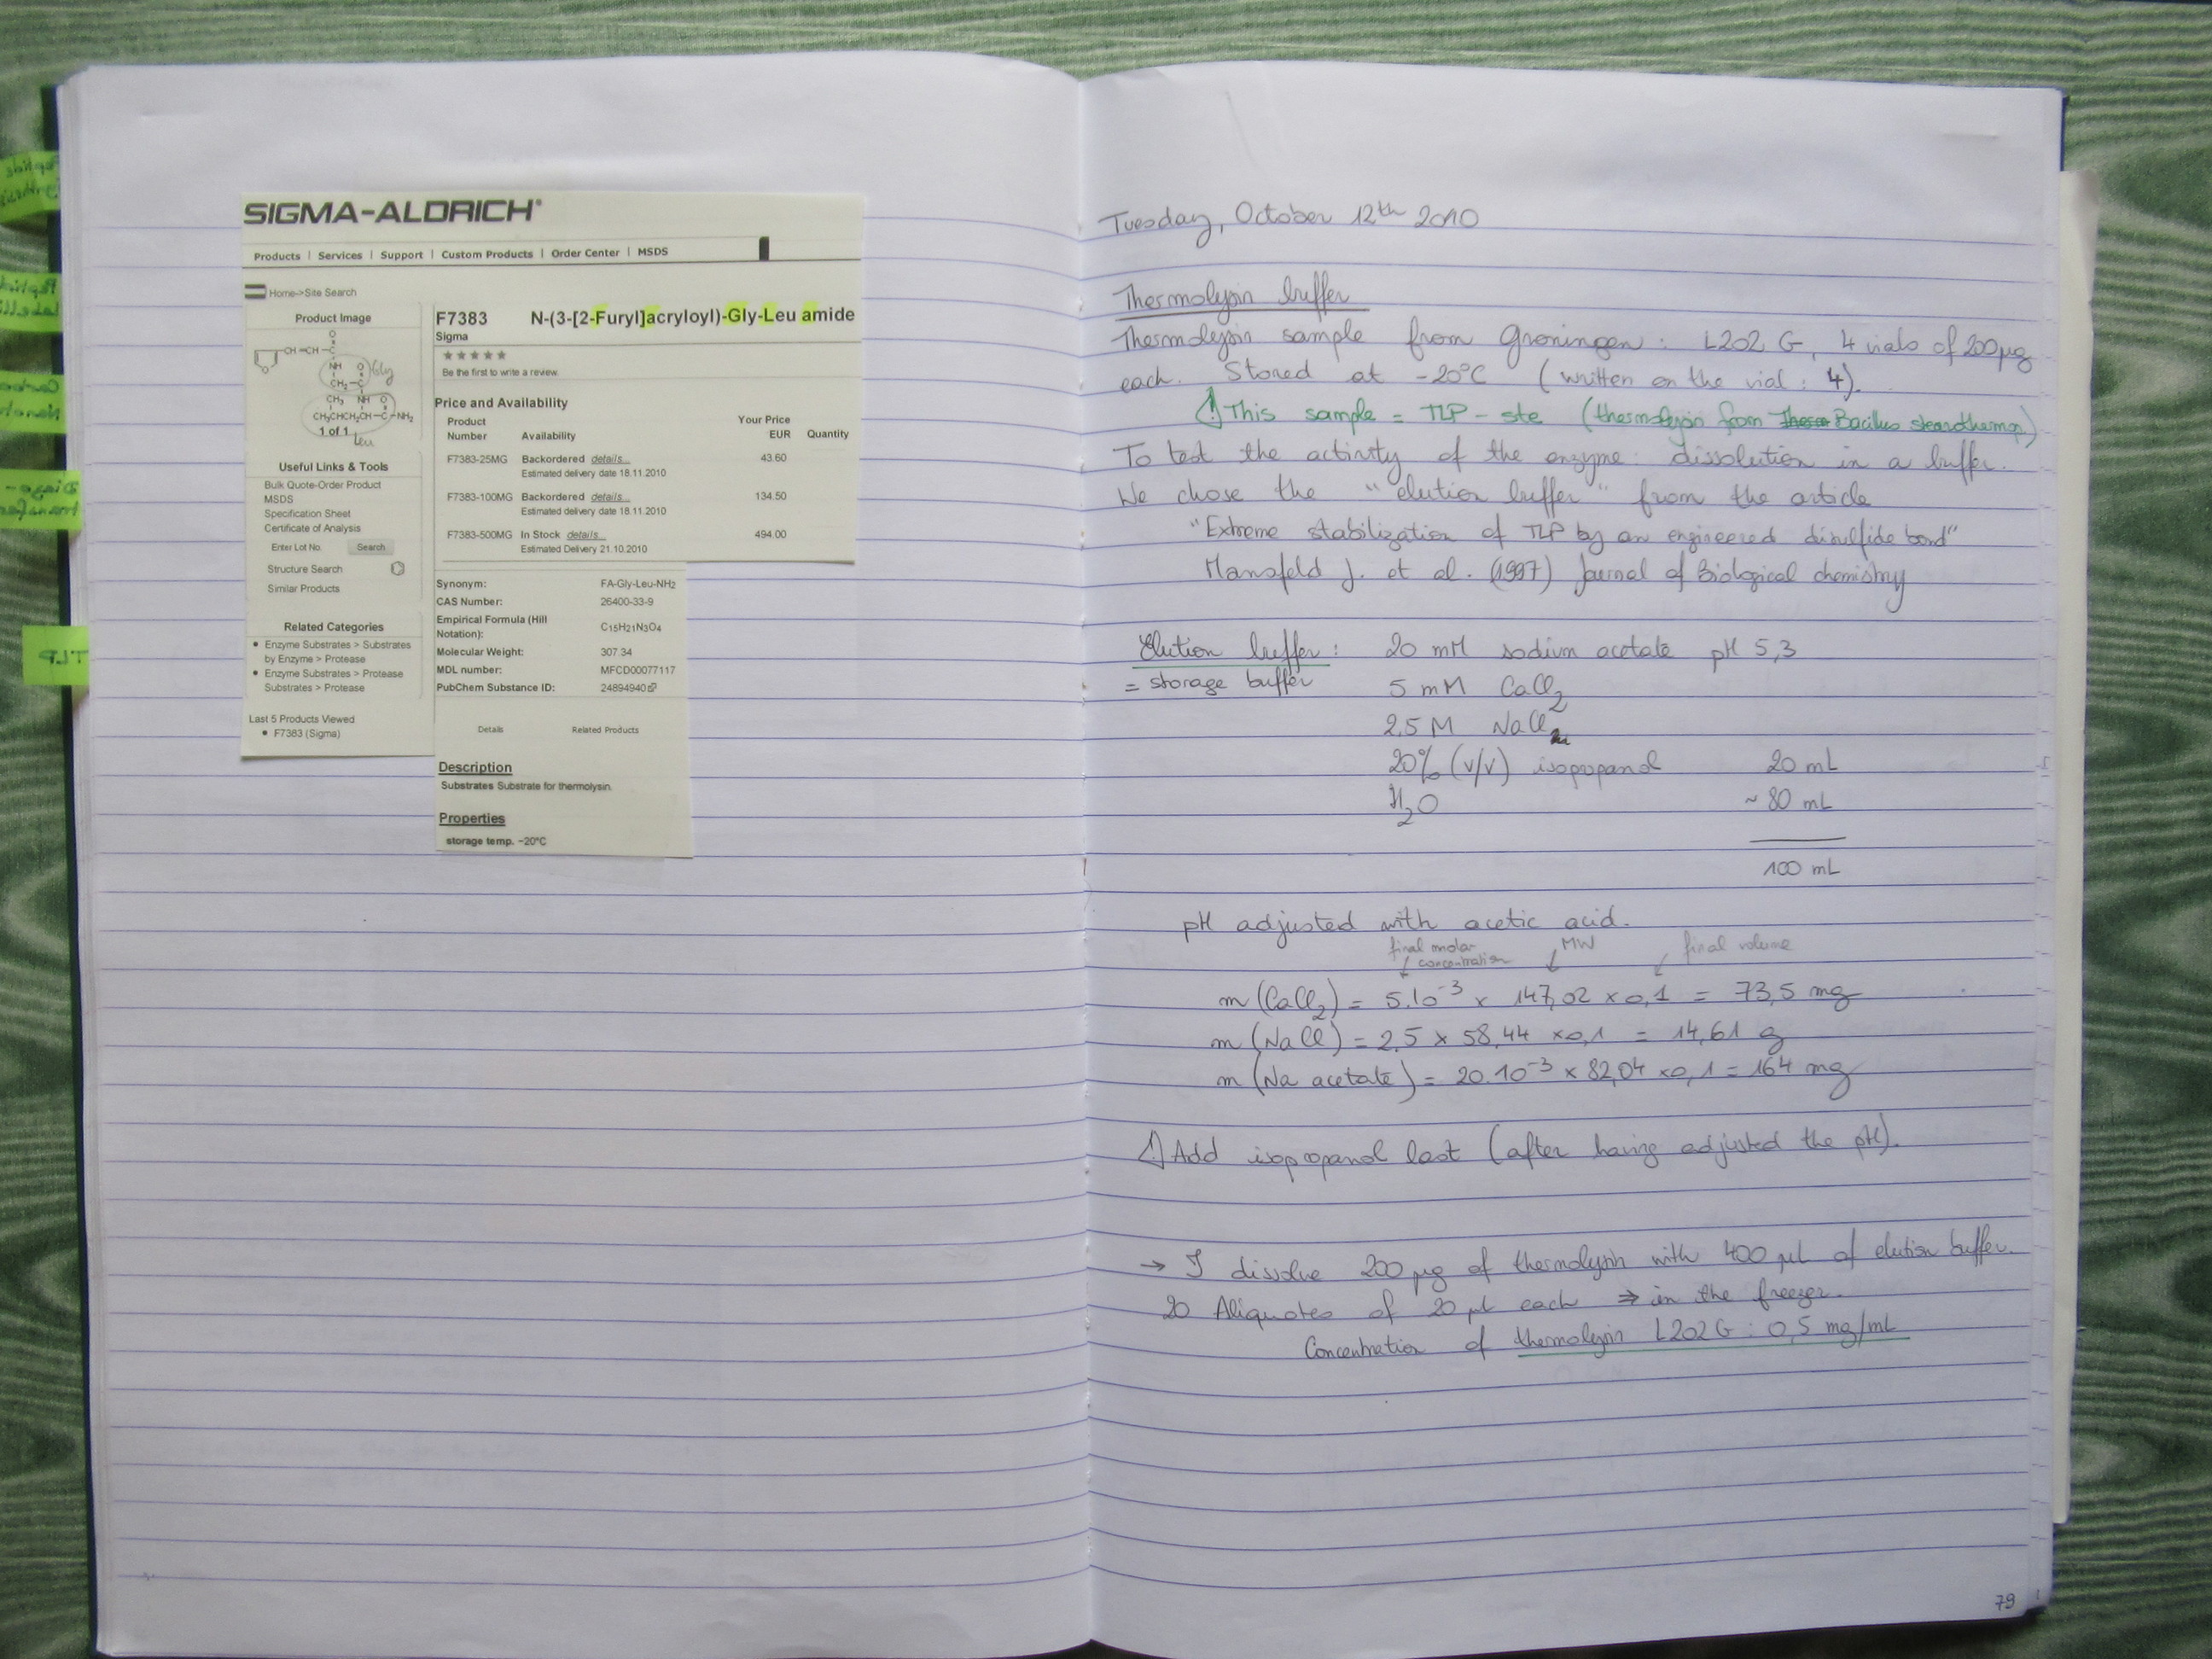 SIGMA-ALDRICH®
Products | Services | Support | Custom Products | Order Center | MSDS
Home->Site Search
Product Image
O
CH=CH-C
O
NH O Gly
CH2-C
CH3 NH O
CH3CHCH2CH-C-NH2
1 of 1
Leu
Useful Links & Tools
Bulk Quote-Order Product
MSDS
Specification Sheet
Certificate of Analysis
Enter Lot No. Search
Structure Search
Similar Products
Related Categories
• Enzyme Substrates > Substrates
by Enzyme > Protease
• Enzyme Substrates > Protease
Substrates > Protease
Last 5 Products Viewed
• F7383 (Sigma)
F7383 N-(3-[2-Furyl]acryloyl)-Gly-Leu amide
Sigma
★★★★★
Be the first to write a review.
Price and Availability
Product Number Availability Your Price EUR Quantity
F7383-25MG Backordered details... 43.60
Estimated delivery date 18.11.2010
F7383-100MG Backordered details... 134.50
Estimated delivery date 18.11.2010
F7383-500MG In Stock details... 494.00
Estimated Delivery 21.10.2010
Synonym: FA-Gly-Leu-NH2
CAS Number: 26400-33-9
Empirical Formula (Hill
Notation): C15H21N3O4
Molecular Weight: 307.34
MDL number: MFCD00077117
PubChem Substance ID: 24894940
Details Related Products
Description
Substrates Substrate for thermolysin.
Properties
storage temp. −20°C
TLP
Tuesday, October 12th 2010
Thermolysin buffer
Thermolysin sample from Groningen: L202 G, 4 vials of 200µg
each. Stored at -20°C (written on the vial: 4).
⚠ This sample = TLP-ste (thermolysin from Bacillus stearothermop)
To test the activity of the enzyme: dissolution in a buffer.
We chose the "elution buffer" from the article
"Extreme stabilization of TLP by an engineered disulfide bond"
Mansfeld J. et al. (1997) Journal of Biological chemistry
Elution buffer: 20 mM sodium acetate pH 5,3
= storage buffer 5 mM CaCl2
2,5 M NaCl
20% (v/v) isopopanol 20 mL
H2O ~ 80 mL
100 mL
pH adjusted with acetic acid.
final molar concentration MW final volume
m (CaCl2) = 5.10-3 x 147,02 x 0,1 = 73,5 mg
m (NaCl) = 2,5 x 58,44 x 0,1 = 14,61 g
m (Na acetate) = 20.10-3 x 82,04 x 0,1 = 164 mg
⚠ Add isopropanol last (after having adjusted the pH).
→ I dissolve 200 µg of thermolysin with 400 µL of elution buffer.
20 Aliquotes of 20 µL each ⇒ in the freezer.
Concentration of thermolysin L202G: 0,5 mg/mL
79